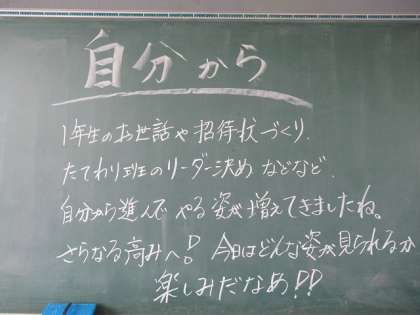 自分から
1年生のお世話や招待状づくり、
たてわり班のリーダー決めなどなど、
自分から進んでやる姿が増えてきましたね。
さらなる高みへ! 今日はどんな姿が見られるか
楽しみだなぁ!!